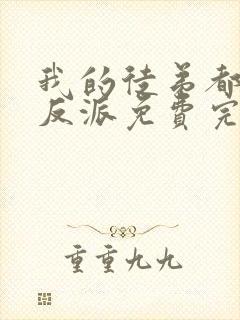 我的徒弟都
反派免费完
重重九九